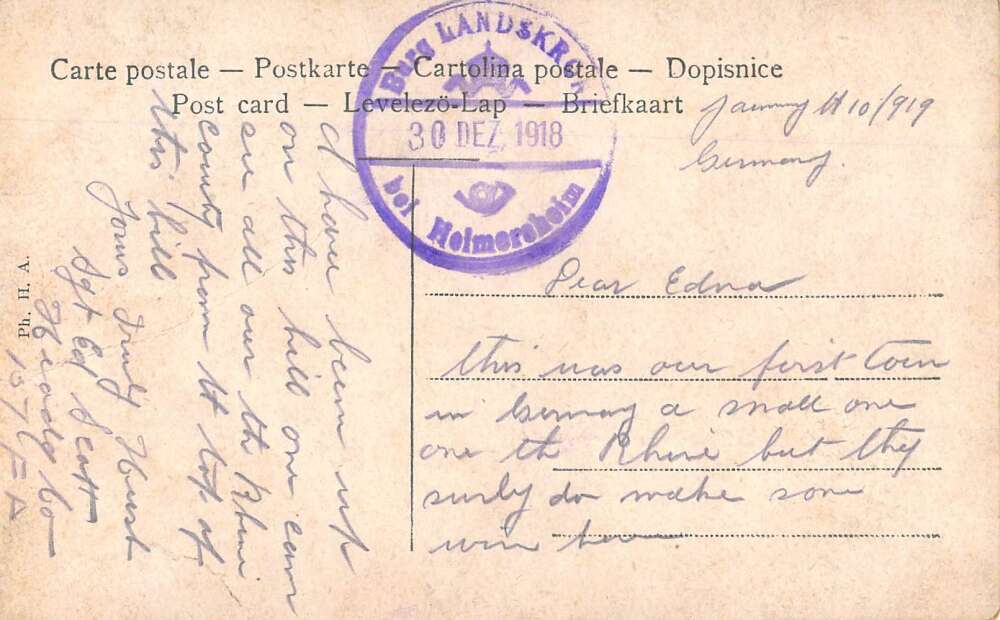 Carte postale — Postkarte — Cartolina postale — Dopisnice
Post card — Levelezö-Lap — Briefkaart
Burg LANDSKRON
30 DEZ. 1918
bei Heimersheim
January 10/919
Germany.
Dear Edna
this was our first town
in Germany a small one
one the Rhine but they
surly do make some
wine here
I have been up
on this hill one can
see all over the Rhine
county from it top of
this hill
Yours Truly Hust
Sgt Ed Scott
Headq Co
107 F A
Ph. H. A.